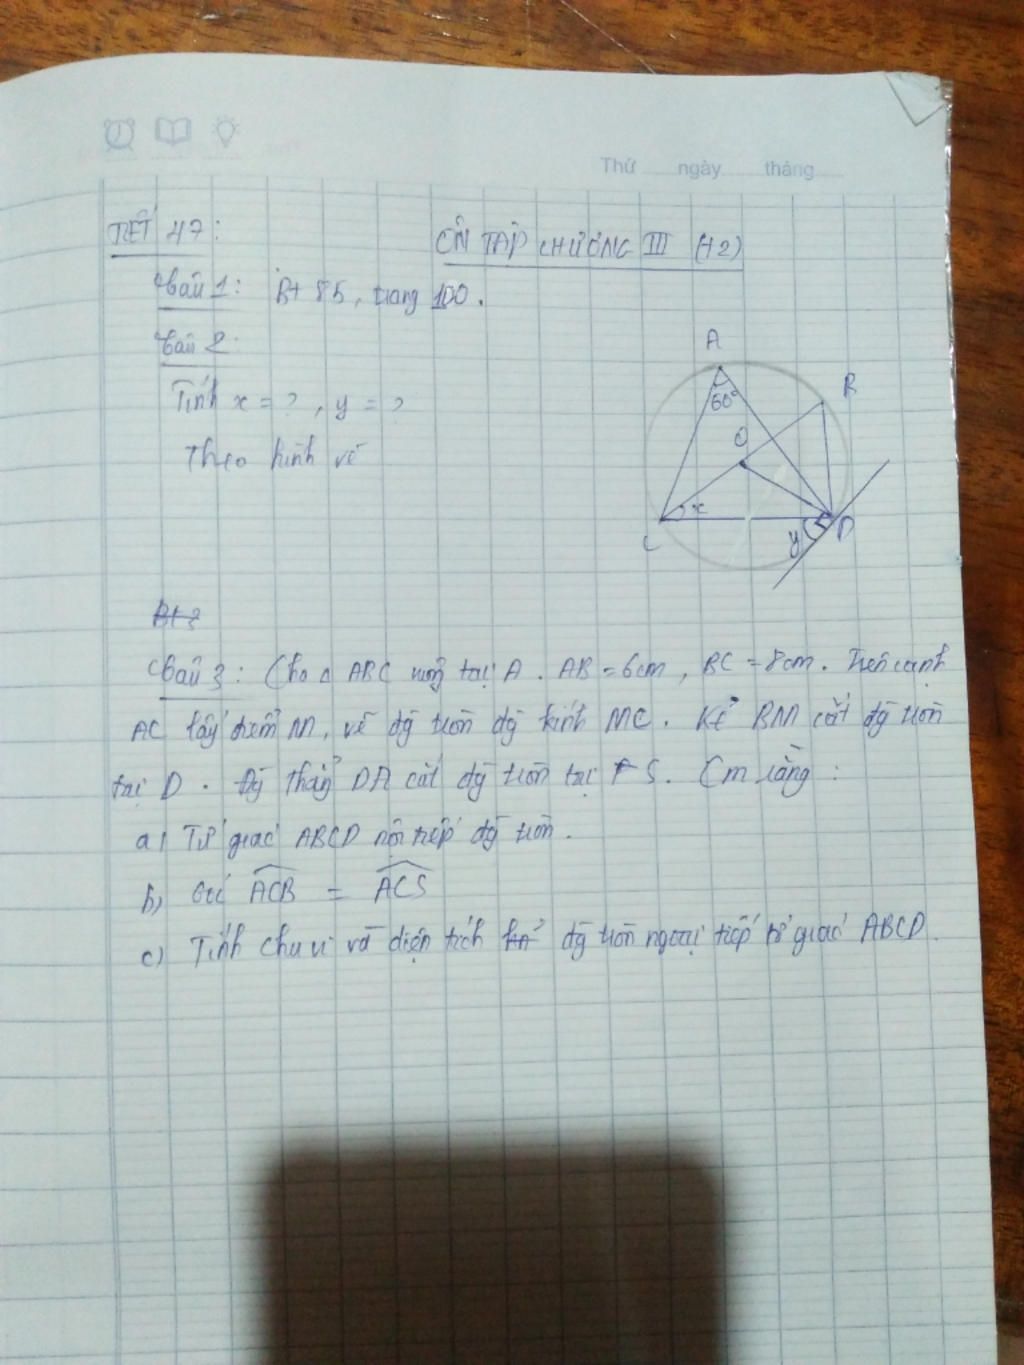 Thứ ngày tháng
TIẾT 47: ÔN TẬP CHƯƠNG III (t2)
Câu 1: Bt 85, trang 100.
Câu 2:
Tính x = ?, y = ?
Theo hình vẽ
A
B
60°
O
x
C
y
D
Bt 3
Câu 3: Cho Δ ABC vuông tại A. AB = 6cm, BC = 8cm. Trên cạnh
AC lấy điểm M, vẽ đg tròn đg kính MC. Kẻ BM cắt đg tròn
tại D. Đg thẳng DA cắt đg tròn tại S. Cm rằng:
a) Tứ giác ABCD nội tiếp đg tròn.
b) Góc ACB = ACS
c) Tính chu vi và diện tích đg tròn ngoại tiếp tứ giác ABCD.